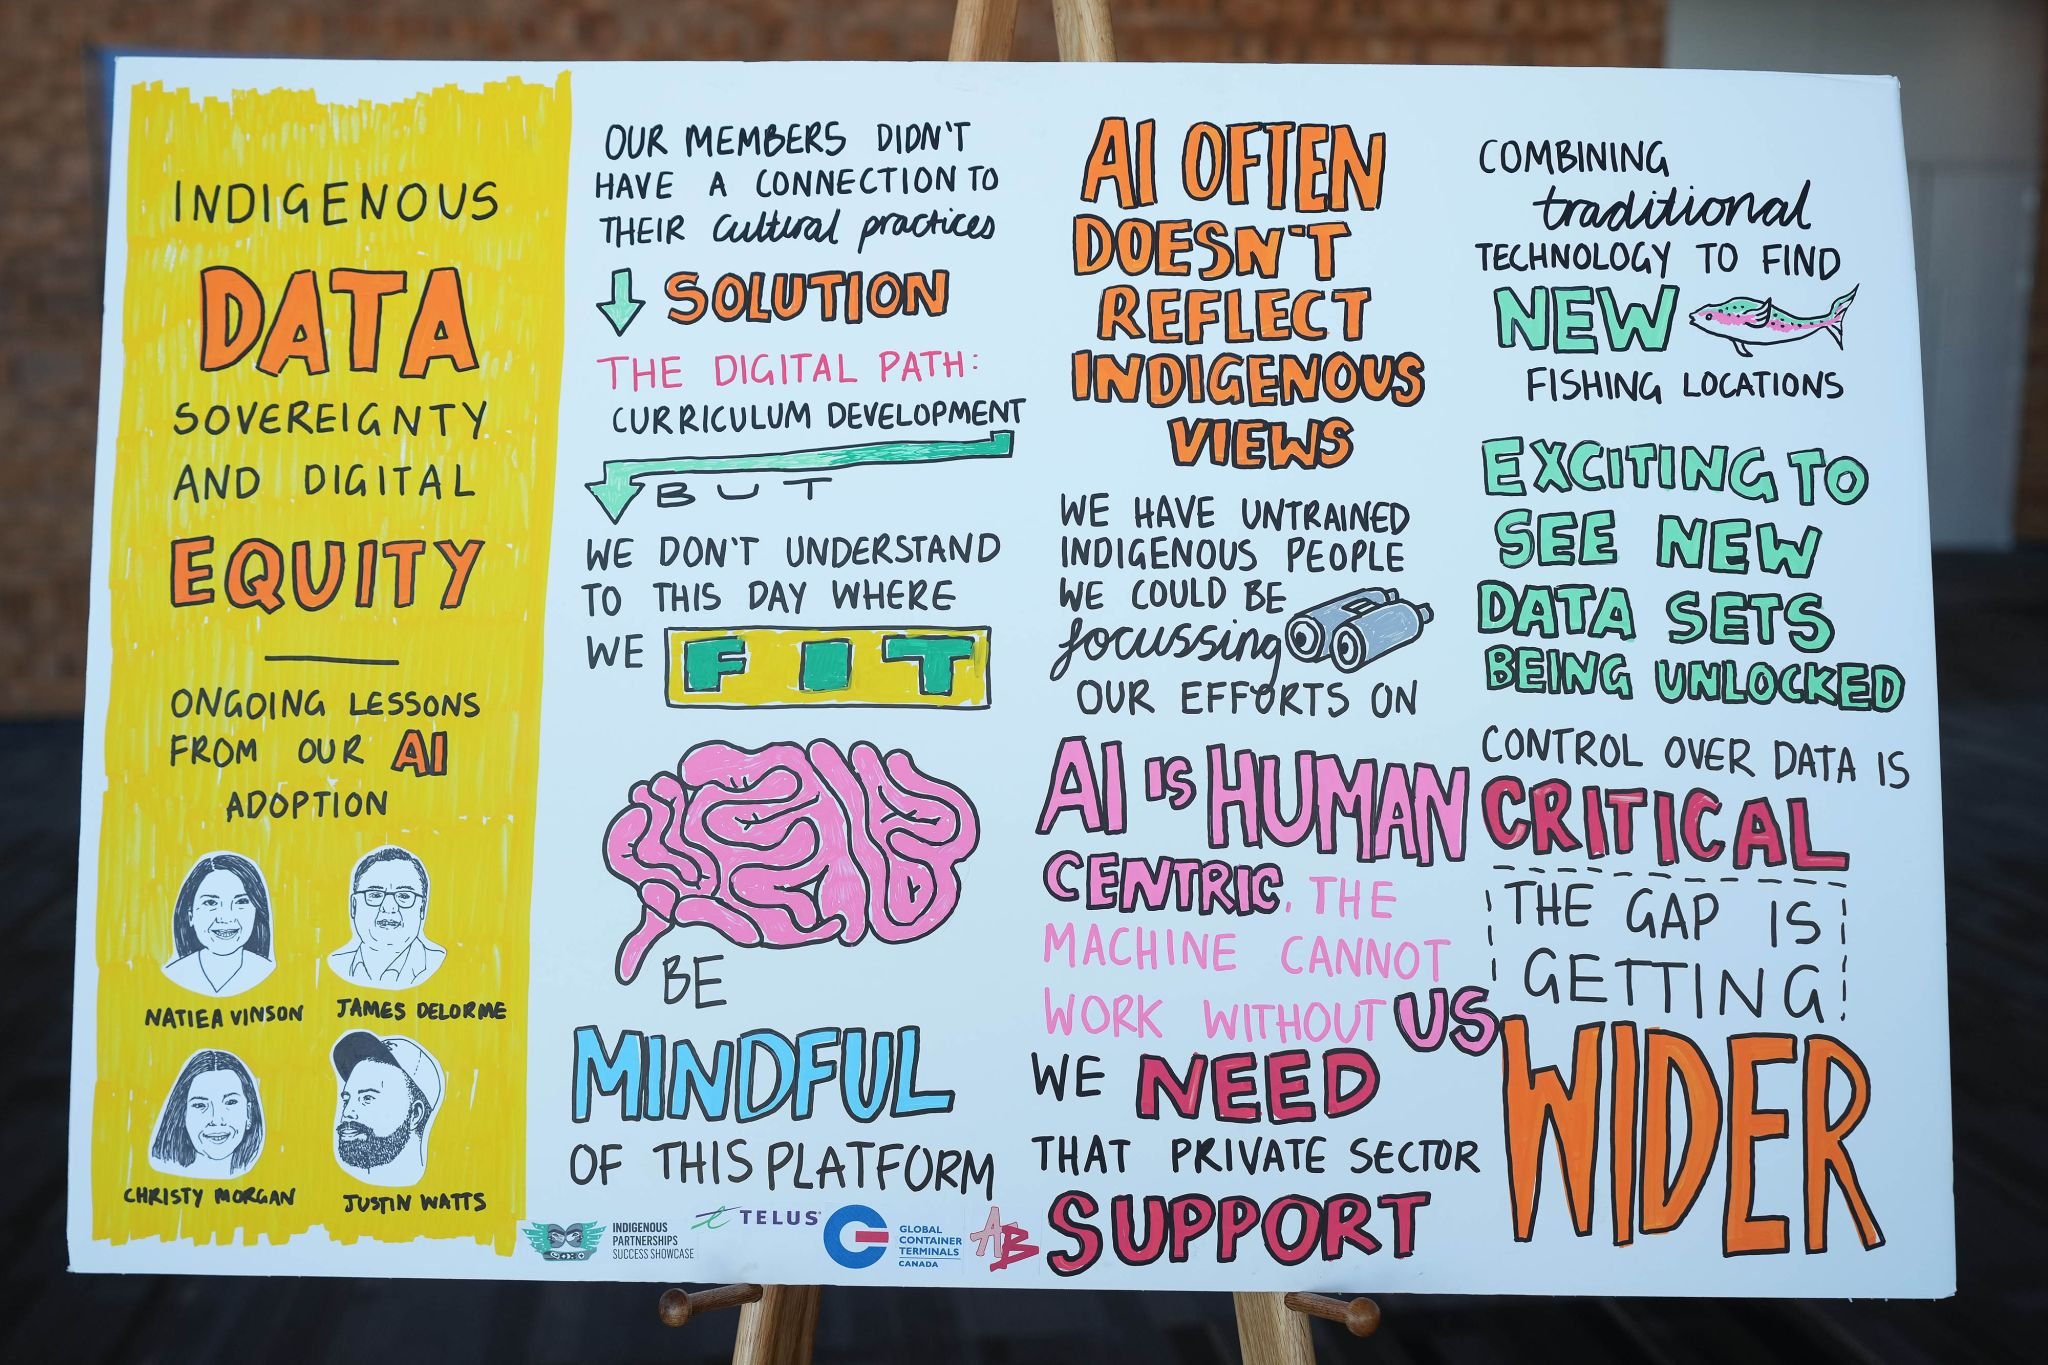 INDIGENOUS
DATA
SOVEREIGNTY
AND DIGITAL
EQUITY
ONGOING LESSONS
FROM OUR AI
ADOPTION
NATIEA VINSON
JAMES DELORME
CHRISTY MORGAN
JUSTIN WATTS
OUR MEMBERS DIDN'T
HAVE A CONNECTION TO
THEIR cultural practices
SOLUTION
THE DIGITAL PATH:
CURRICULUM DEVELOPMENT
BUT
WE DON'T UNDERSTAND
TO THIS DAY WHERE
WE FIT
BE
MINDFUL
OF THIS PLATFORM
INDIGENOUS
PARTNERSHIPS
SUCCESS SHOWCASE
TELUS
GLOBAL
CONTAINER
TERMINALS
CANADA
AB
AI OFTEN
DOESN'T
REFLECT
INDIGENOUS
VIEWS
WE HAVE UNTRAINED
INDIGENOUS PEOPLE
WE COULD BE
focussing
OUR EFFORTS ON
AI IS HUMAN
CENTRIC. THE
MACHINE CANNOT
WORK WITHOUT US
WE NEED
THAT PRIVATE SECTOR
SUPPORT
COMBINING
traditional
TECHNOLOGY TO FIND
NEW
FISHING LOCATIONS
EXCITING TO
SEE NEW
DATA SETS
BEING UNLOCKED
CONTROL OVER DATA IS
CRITICAL
THE GAP IS
GETTING
WIDER